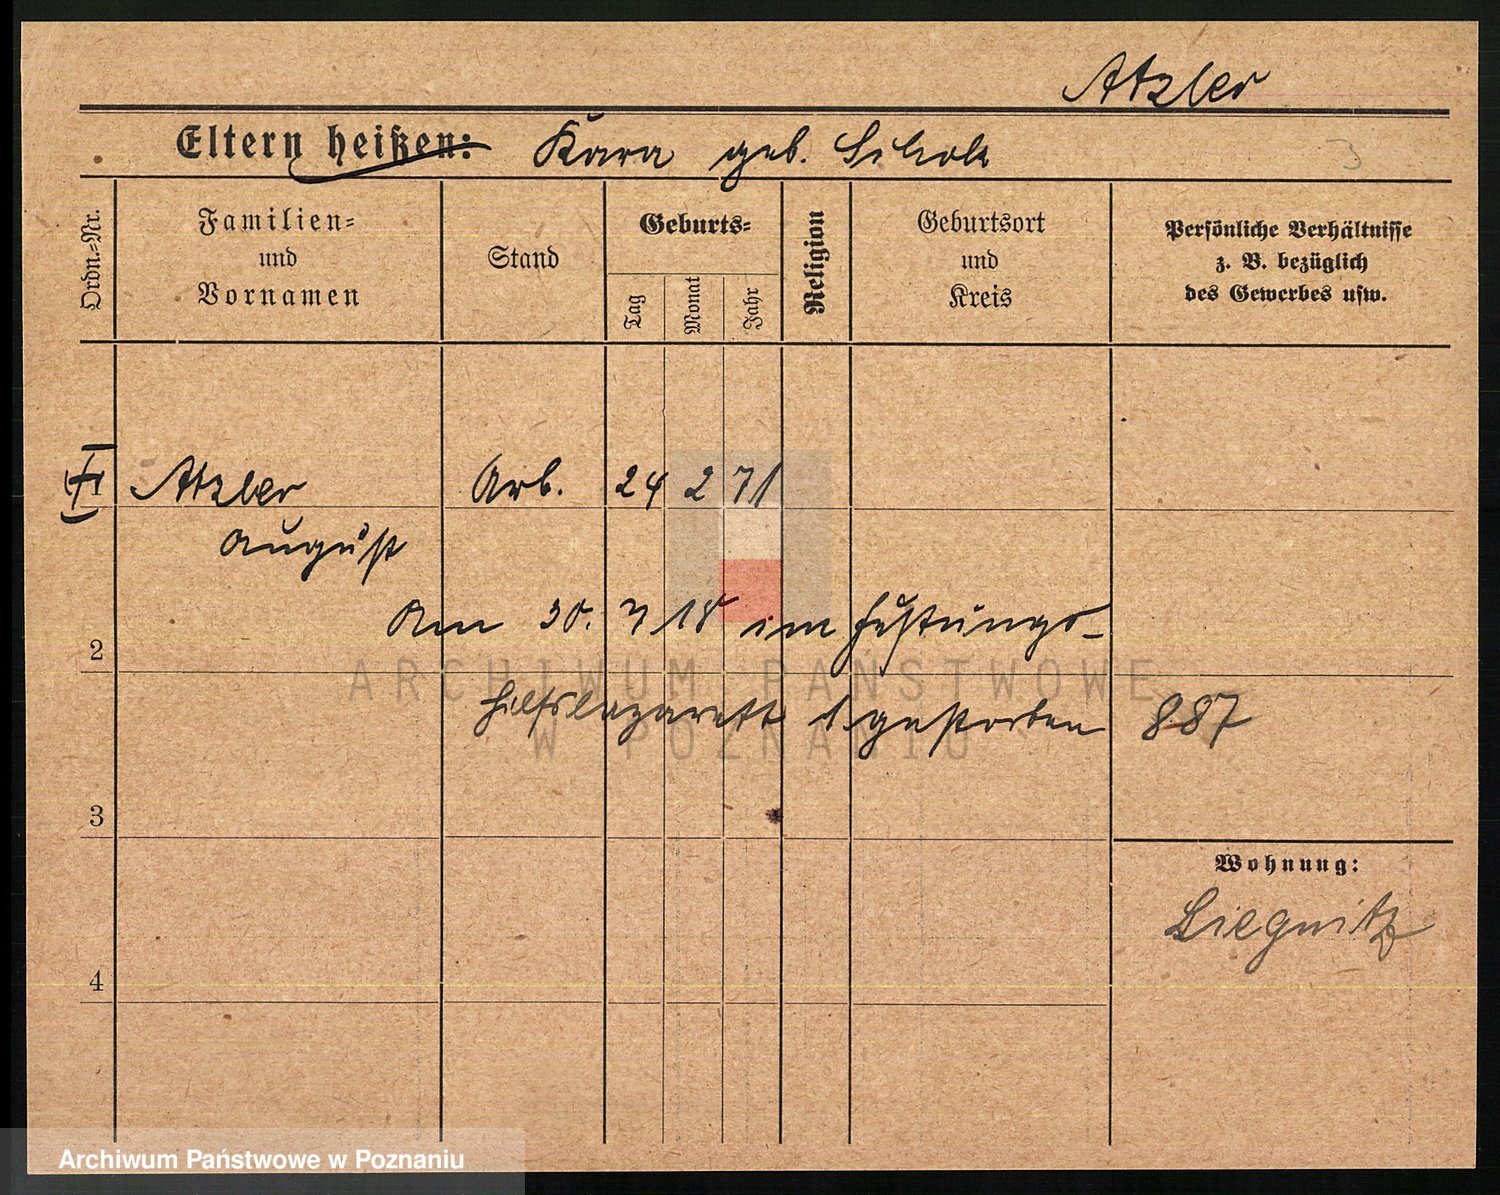 Atzler
Eltern heißen: geb.
3
Ordn.-Nr.
Familien-
und
Vornamen
Stand
Geburts-
Tag
Monat
Jahr
Religion
Geburtsort
und
Kreis
Persönliche Verhältnisse
z. B. bezüglich
des Gewerbes usw.
Atzler Arb. 24 2 71
August
Am 30. 7 18 im Festungs-
2
hilfslazarett 1 gestorben 887
3
Wohnung:
Liegnitz
4
ARCHIWUM PAŃSTWOWE
W POZNANIU
Archiwum Państwowe w Poznaniu